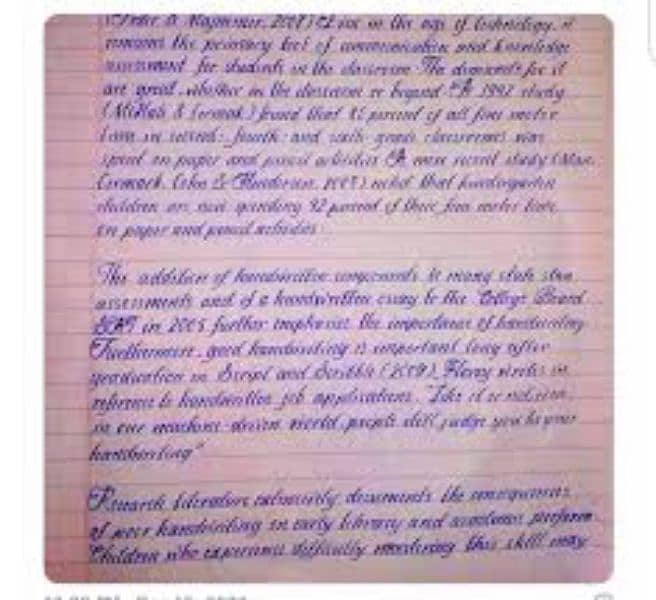 in the age of technology, it
remains the primary tool of communication and knowledge
assessment for students in the classroom. The demands for it
are great, whether in the classroom or beyond. A 1992 study
found that 85 percent of all fine motor
time in second, fourth and sixth grade classrooms was
spent on paper and pencil activities. A more recent study
noted that kindergarten
children are now spending 42 percent of their fine motor time
on paper and pencil activities.
The addition of handwritten components to many state
assessments and of a handwritten essay to the College Board
SAT in 2005 further emphasize the importance of handwriting
Furthermore, good handwriting is important long after
graduation. In Script and Scribble (2009), Florey writes in
reference to handwritten job applications, "Like it or not,
in our machine-driven world, people still judge you by your
handwriting"
Research literature extensively documents the consequences
of poor handwriting on early literacy and academic
Children who experience difficulty mastering this skill may